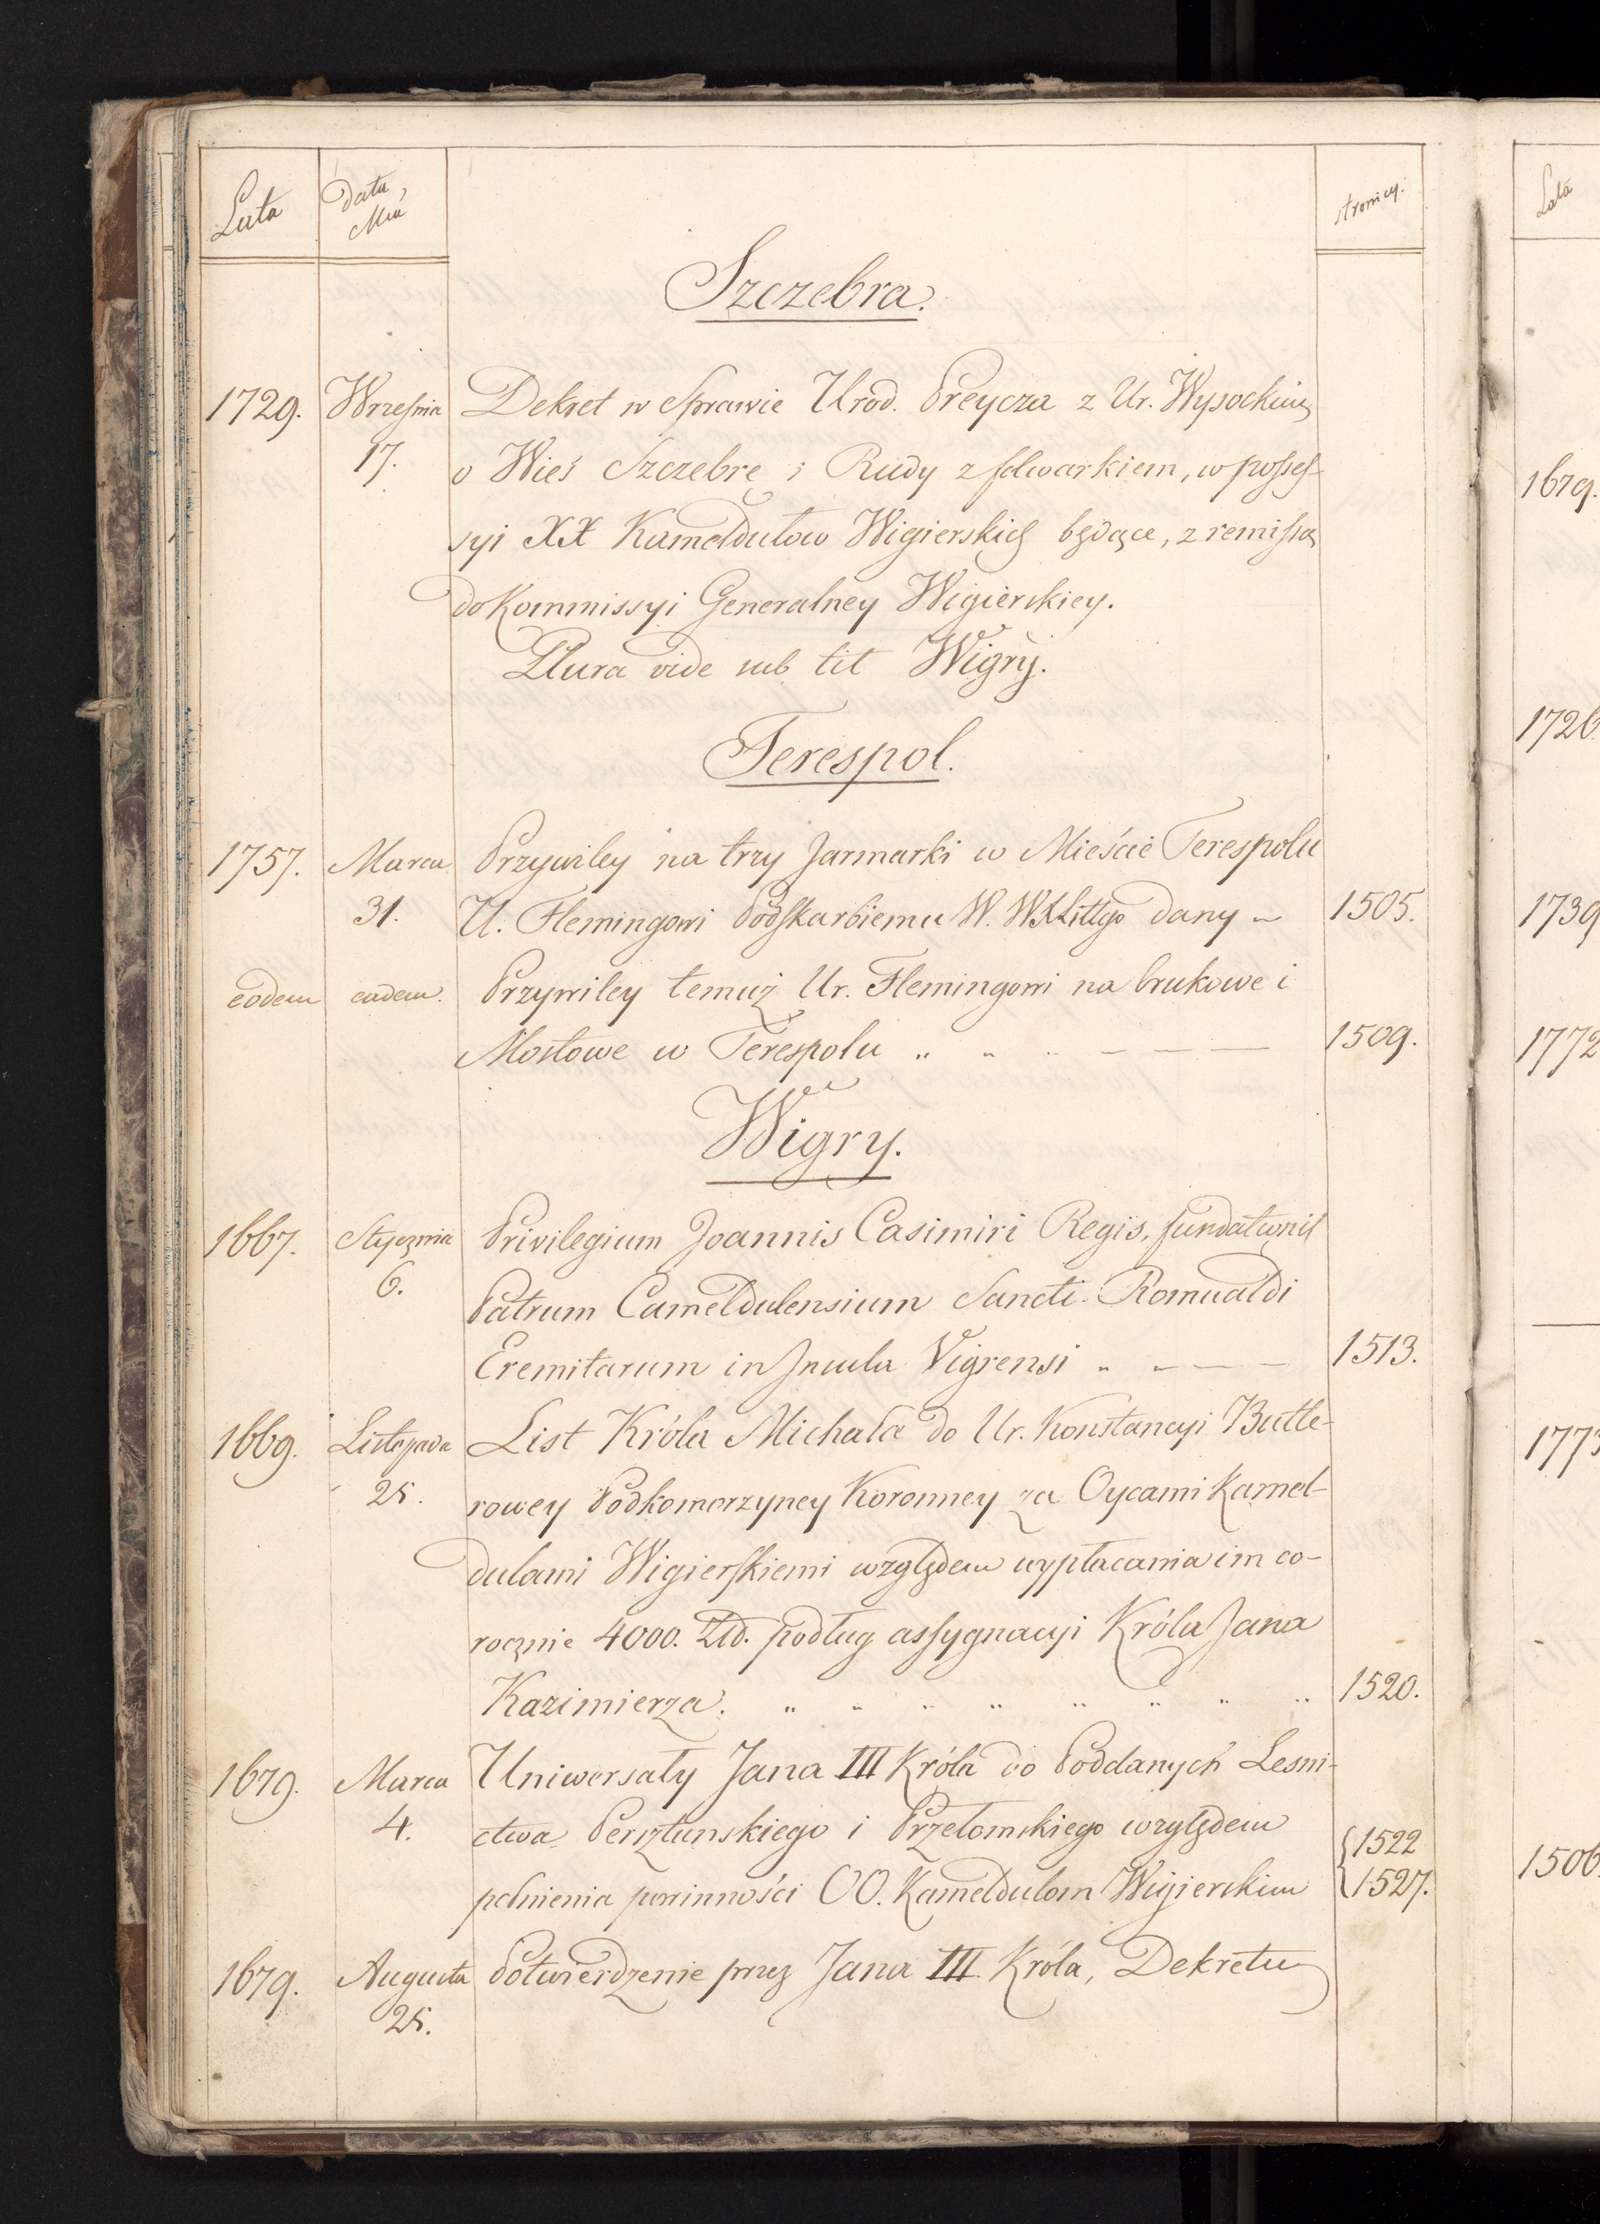 Lata
Data,
Mca
stronicy.
Szczebra.
1729. Wrzesnia Dekret w Sprawie Urod. Preycza z Ur. Wysockim
17. o Wieś Szczebrę i Rudy z folwarkiem, w posses-
syi XX Kamedułow Wigierskich będące, z remissą
do Kommissyi Generalney Wigierskiey.
Plura vide sub tit Wigry.
Terespol.
1757. Marca Przywiley na trzy Jarmarki w Mieście Terespolu
31. U. Flemingowi Podskarbiemu W. WXLittgo dany 1505.
eodem eodem. Przywiley temuż Ur. Flemingowi na brukowe i
Mostowe w Terespolu " " " — — — 1509.
Wigry.
1667. Stycznia Privilegium Joannis Casimiri Regis, fundationis
6. Patrum Cameldulensium Sancti Romualdi
Eremitarum in Insula Vigrensi " — — — 1513.
1669. Listopada List Króla Michała do Ur. Konstancyi Butle-
25. rowey Podkomorzyney Koronney za Oycami Kamel-
dulami Wigierskiemi względem wypłacania im co-
rocznie 4000. Złb. podług assygnacyi Króla Jana
Kazimierza. " " " " " " " " 1520.
1679. Marca Uniwersały Jana III Króla do Poddanych Lesni-
4. ctwa Persztunskiego i Przełomskiego względem { 1522
pełnienia powinności OO. Kameldulom Wigierskim { 1527.
1679. Augusta Potwierdzenie przez Jana III. Króla, Dekretu
25.
Lata
1679.
1726.
1739
1772
1773
1506.